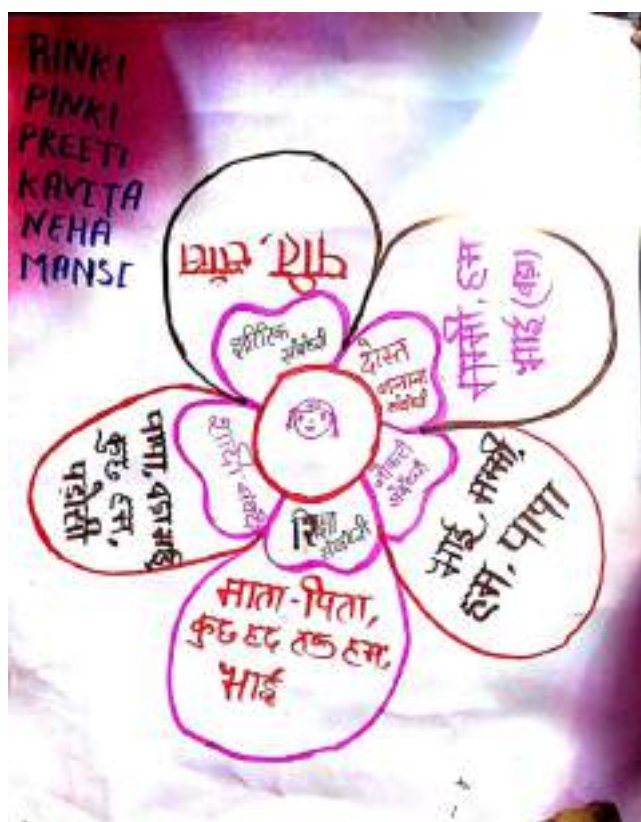 RINKI
PINKI
PREETI
KAVITA
NEHA
MANSI
पति,
शारीरिक
संबंधी
दोस्त
बनाना
संबंधी
मम्मी, हम
भाई (कुछ)
नौकरी
संबंधी
भाई, मम्मी,
हम, पापा
शिक्षा
संबंधी
माता-पिता,
कुछ हद तक हम,
भाई
शादी संबंधी
पापा, बड़ा भाई
कुछ हम,
पड़ोसी